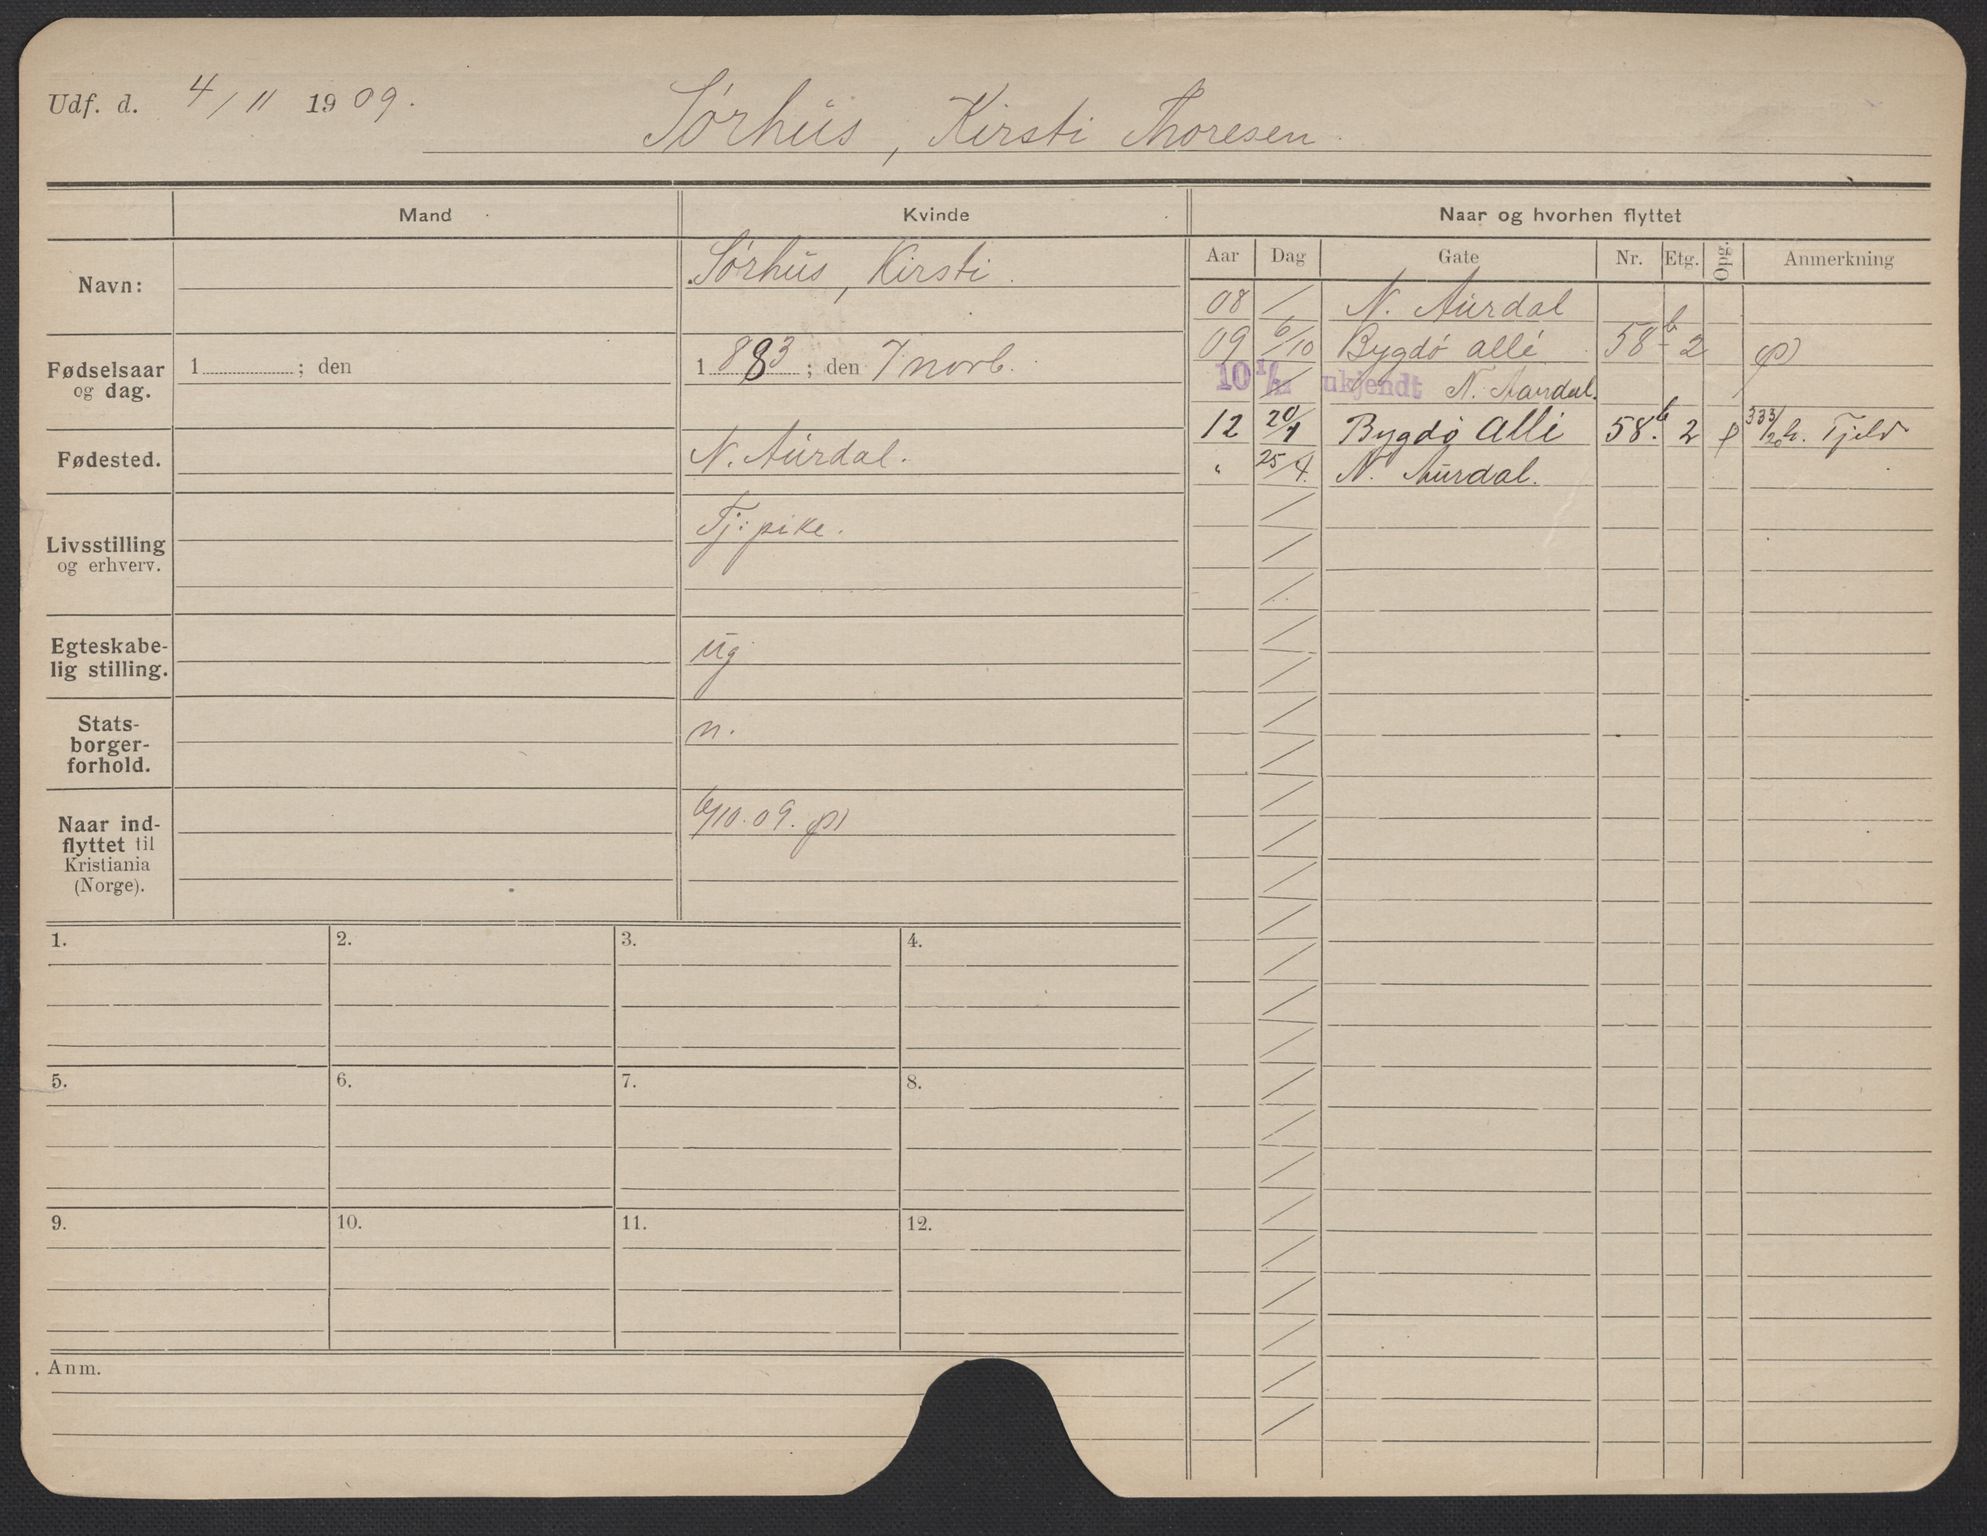 Udf. d. 4/11 1909.
Sørhus, Kirsti Thoresen.
Mand
Kvinde
Naar og hvorhen flyttet
Aar Dag Gate Nr. Etg. Opg. Anmerkning
Navn:
Sørhus, Kirsti.
Fødselsaar og dag.
1 ; den
1883; den 7 novb.
Fødested.
N. Aurdal.
Livsstilling og erhverv.
Tj: pike.
Egteskabelig stilling.
ug
Statsborgerforhold.
n.
Naar indflyttet til Kristiania (Norge).
6/10.09. p)
08 / N. Aurdal
09 6/10 Bygdø alle 58b 2 p)
10 1/12 ukjendt N. Aurdal.
12 20/1 Bygdø Alle 58b. 2 p 333/20 h. Tjeld
" 25/4. N. Aurdal.
1. 2. 3. 4.
5. 6. 7. 8.
9. 10. 11. 12.
Anm.